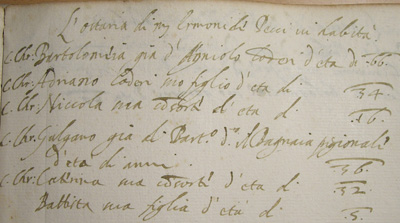 L'ostaria di m. Ermonide Pecci vi habita
C. Chr. Bartolomeia già d'Agniolo Coderi d'età di 66.
C. Chr. Adriano Coderi suo figlio d'età di 34
C. Chr. Niccola sua cosorte d'età di 26
C. Chr. Galgano già di Bart.o d.o il Bagnaia pigionale
d'età di anni 36
C. Chr. Caterina sua cosorte d'età di 32
Babbita sua figlia d'età di 5.